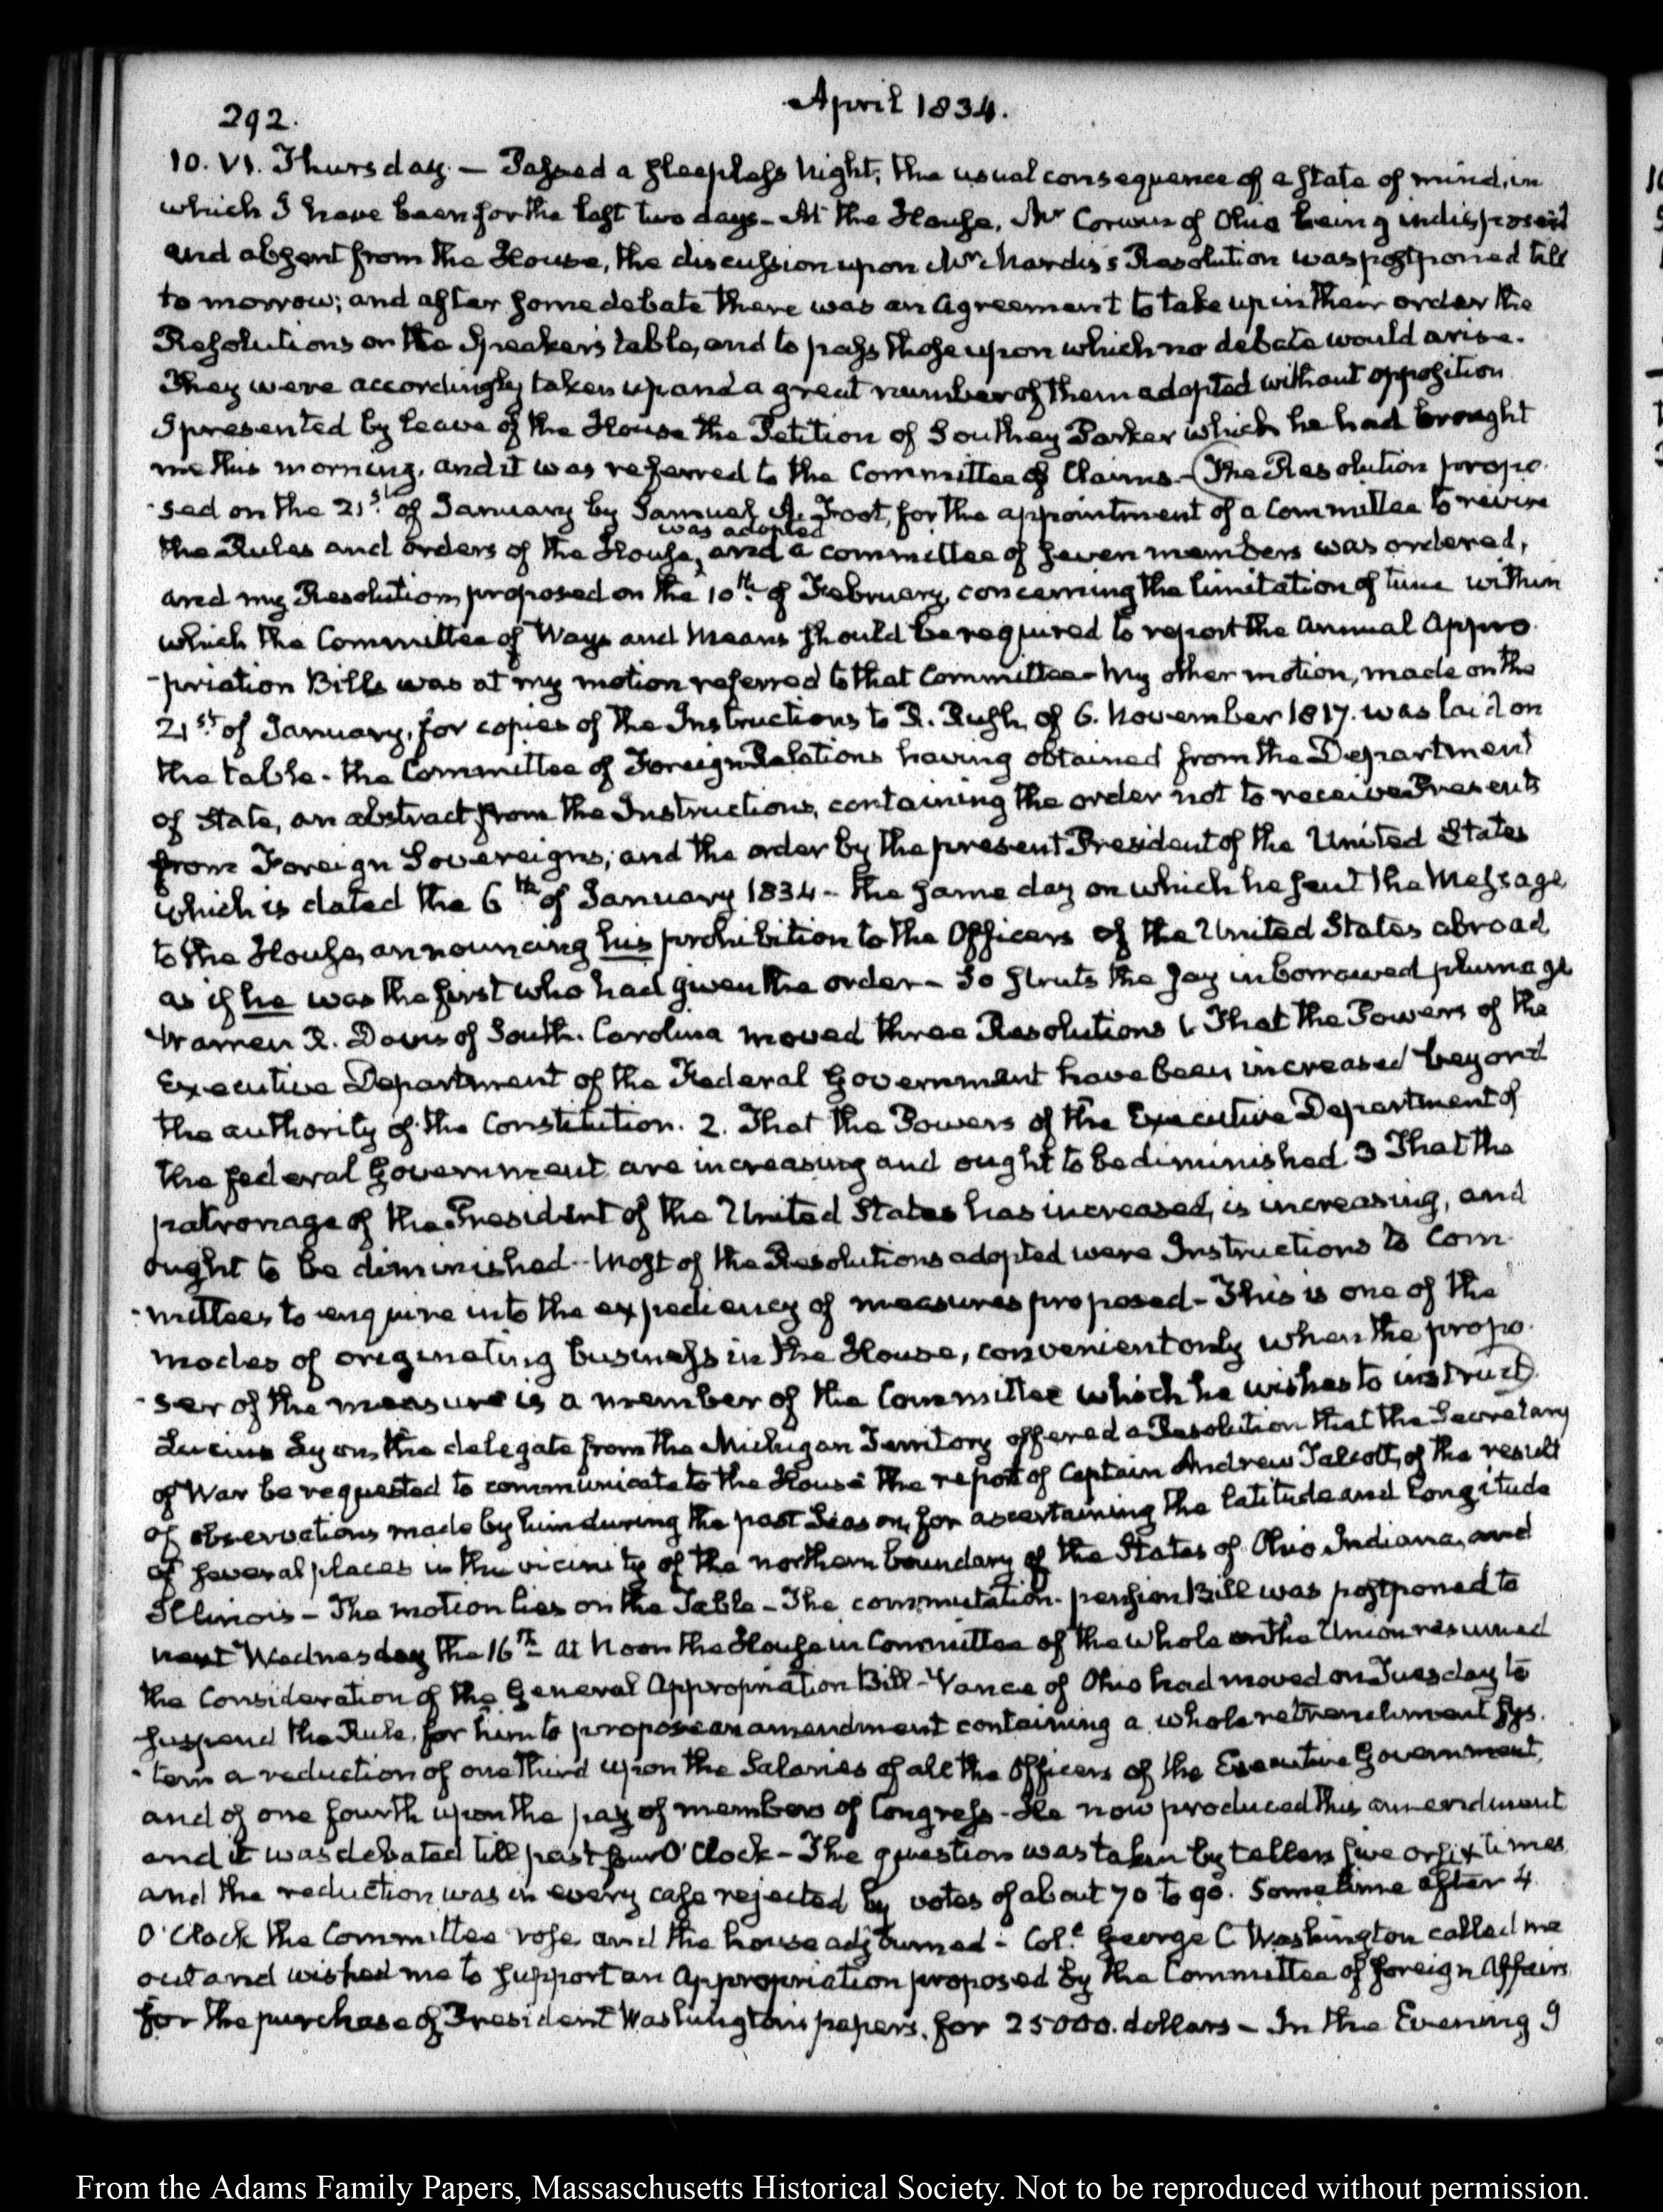 292.
April 1834.
10. VI. Thursday. — Passed a sleepless Night; the usual consequence of a state of mind, in
which I have been for the last two days — At the House, Mr Corwin of Ohio being indisposed
and absent from the House, the discussion upon Mr Mardis's Resolution was postponed till
to morrow; and after some debate there was an Agreement to take up in their order the
Resolutions on the Speaker's table, and to pass those upon which no debate would arise.
They were accordingly taken up and a great number of them adopted without opposition
I presented by leave of the House the Petition of Southey Parker which he had brought
me this morning, and it was referred to the Committee of Claims — (The Resolution propo-
-sed on the 21st of January by Samuel A. Foot, for the appointment of a Committee to revise
was adopted
the Rules and orders of the House, and a committee of seven members was ordered,
and my Resolution, proposed on the 10th of February, concerning the limitation of time within
which the Committee of Ways and Means should be required to report the Annual Appro-
-priation Bills was at my motion referred to that Committee — My other motion, made on the
21st of January, for copies of the Instructions to R. Rush, of 6. November 1817. was laid on
the table - the Committee of Foreign Relations having obtained from the Department
of State, an abstract from the Instructions, containing the order not to receive Presents
from Foreign Sovereigns; and the order by the present President of the United States
which is dated the 6th of January 1834 — the same day on which he sent the Message
to the House, announcing his prohibition to the Officers of the United States abroad,
as if he was the first who had given the order — So struts the Jay in borrowed plumage
Warren R. Davis of South-Carolina moved three Resolutions 1. That the Powers of the
Executive Department of the Federal Government have been increased beyond
the authority of the Constitution. 2. That the Powers of the Executive Department of
the federal Government are increasing and ought to be diminished 3 That the
patronage of the President of the United States has increased, is increasing, and
ought to be diminished — Most of the Resolutions adopted were Instructions to Com-
-mittees to enquire into the expediency of measures proposed — This is one of the
modes of originating business in the House, convenient only when the propo-
-ser of the measure is a member of the Committee which he wishes to instruct)
Lucius Lyon, the delegate from the Michigan Territory offered a Resolution that the Secretary
of War be requested to communicate to the House the report of Captain Andrew Talcott, of the result
of observations made by him during the past Season, for ascertaining the latitude and longitude
of several places in the vicinity of the northern boundary of the States of Ohio Indiana, and
Illinois — The motion lies on the Table — The commutation-pension Bill was postponed to
next Wednesday the 16th — At Noon the House in Committee of the whole on the Union resumed
the Consideration of the General Appropriation Bill — Vance of Ohio had moved on Tuesday to
suspend the Rule, for him to propose an amendment containing a whole retrenchment sys-
-tem a reduction of one third upon the Salaries of all the Officers of the Executive Government,
and of one fourth upon the pay of members of Congress — He now produced this amendment
and it was debated till past four O'Clock — The question was taken by tellers five or six times
and the reduction was in every case rejected by votes of about 70 to 90. Sometime after 4
O'Clock the Committee rose, and the house adjourned — Col. George C Washington called me
out and wished me to support an Appropriation proposed by the Committee of foreign Affairs
for the purchase of President Washington's papers, for 25000. dollars — In the Evening I
From the Adams Family Papers, Massachusetts Historical Society. Not to be reproduced without permission.